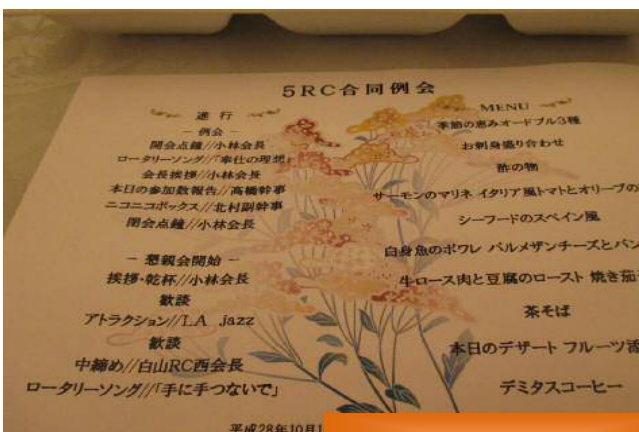 5RC合同例会
進行
- 例会 -
開会点鐘//小林会長
ロータリーソング//「奉仕の理想
会長挨拶//小林会長
本日の参加数報告//高橋幹事
ニコニコボックス//北村副幹事
閉会点鐘//小林会長
- 懇親会開始 -
挨拶・乾杯//小林会長
歓談
アトラクション//LA jazz
歓談
中締め//白山RC西会長
ロータリーソング//「手に手つないで」
MENU
季節の恵みオードブル3種
お刺身盛り合わせ
酢の物
サーモンのマリネ イタリア風トマトとオリーブの
シーフードのスペイン風
白身魚のポワレ パルメザンチーズとパン
牛ロース肉と豆腐のロースト 焼き茄
茶そば
本日のデザート フルーツ
デミタスコーヒー
平成28年10月1